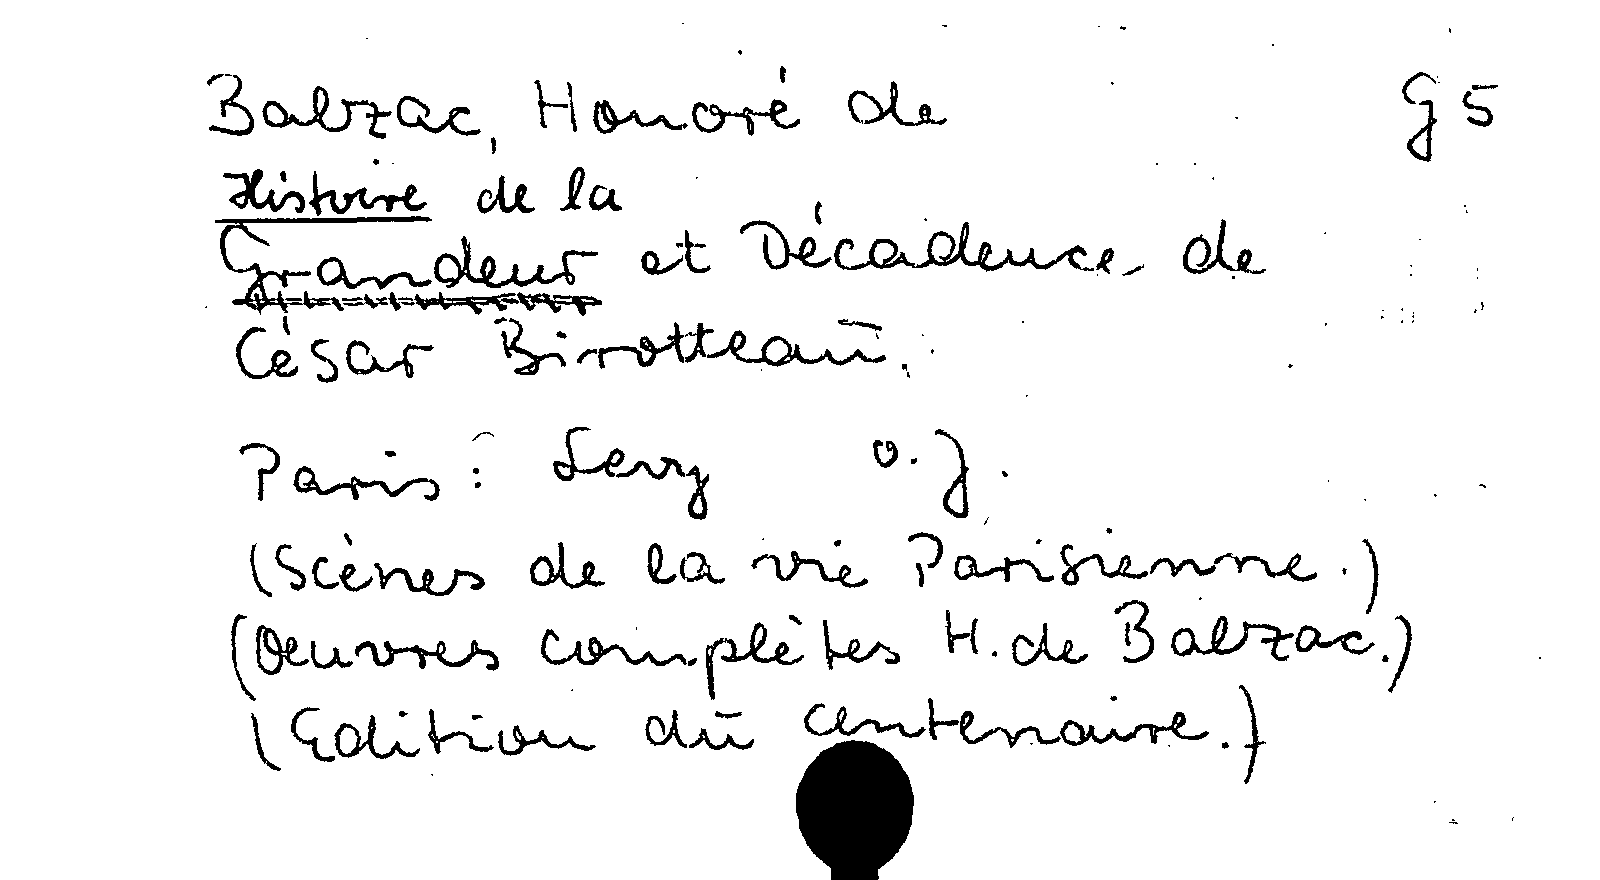 Balzac, Honoré de G 5
Histoire de la
Grandeur et Décadence de
César Birotteau.
Paris: Levy o.J.
(Scènes de la vie Parisienne.)
(Œuvres complètes H. de Balzac.)
(Edition du centenaire.)